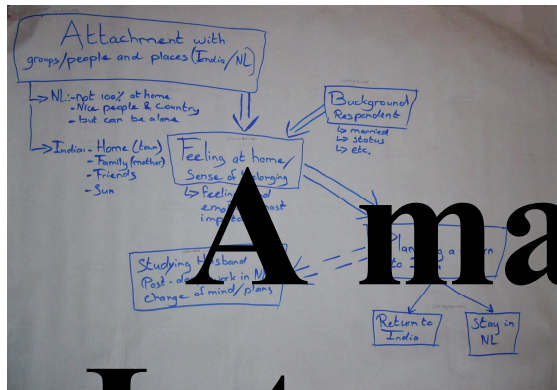 Attachment with
groups/people and places (India/NL)
NL: - not 100% at home
- Nice people & Country
- but can be alone
India: - Home (town)
- Family (mother)
- Friends
- Sun
Background
Respondent
married
status
etc.
Feeling at home/
Sense of
Studying Husband
Post-
Change of mind/plans
Return to
India
Stay in
NL
A ma